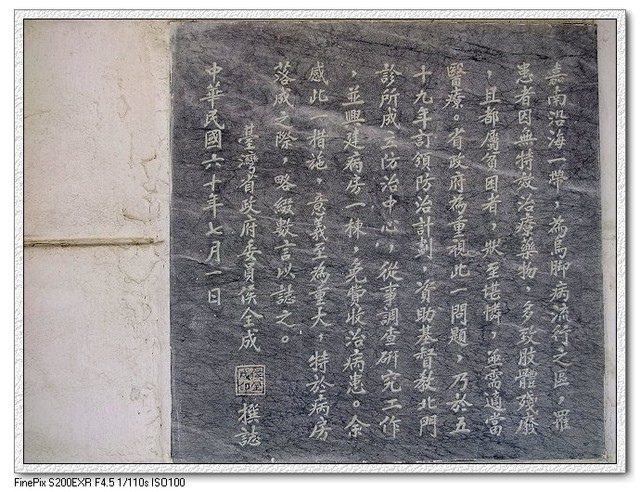 嘉南沿海一帶，為烏脚病流行之區，罹
患者因無特效治療藥物，多致肢體殘廢
，且都屬貧困者，狀至堪憐，亟需適當
醫療。省政府為重視此一問題，乃於五
十九年訂頒防治計劃，資助基督教北門
診所成立防治中心，從事調查研究工作
，並興建病房一棟，免費收治病患。余
感此一措施，意義至為重大，特於病房
落成之際，略綴數言以誌之。
臺灣省政府委員侯全成 侯全成印 撰誌
中華民國六十年七月一日
FinePix S200EXR F4.5 1/110s ISO100